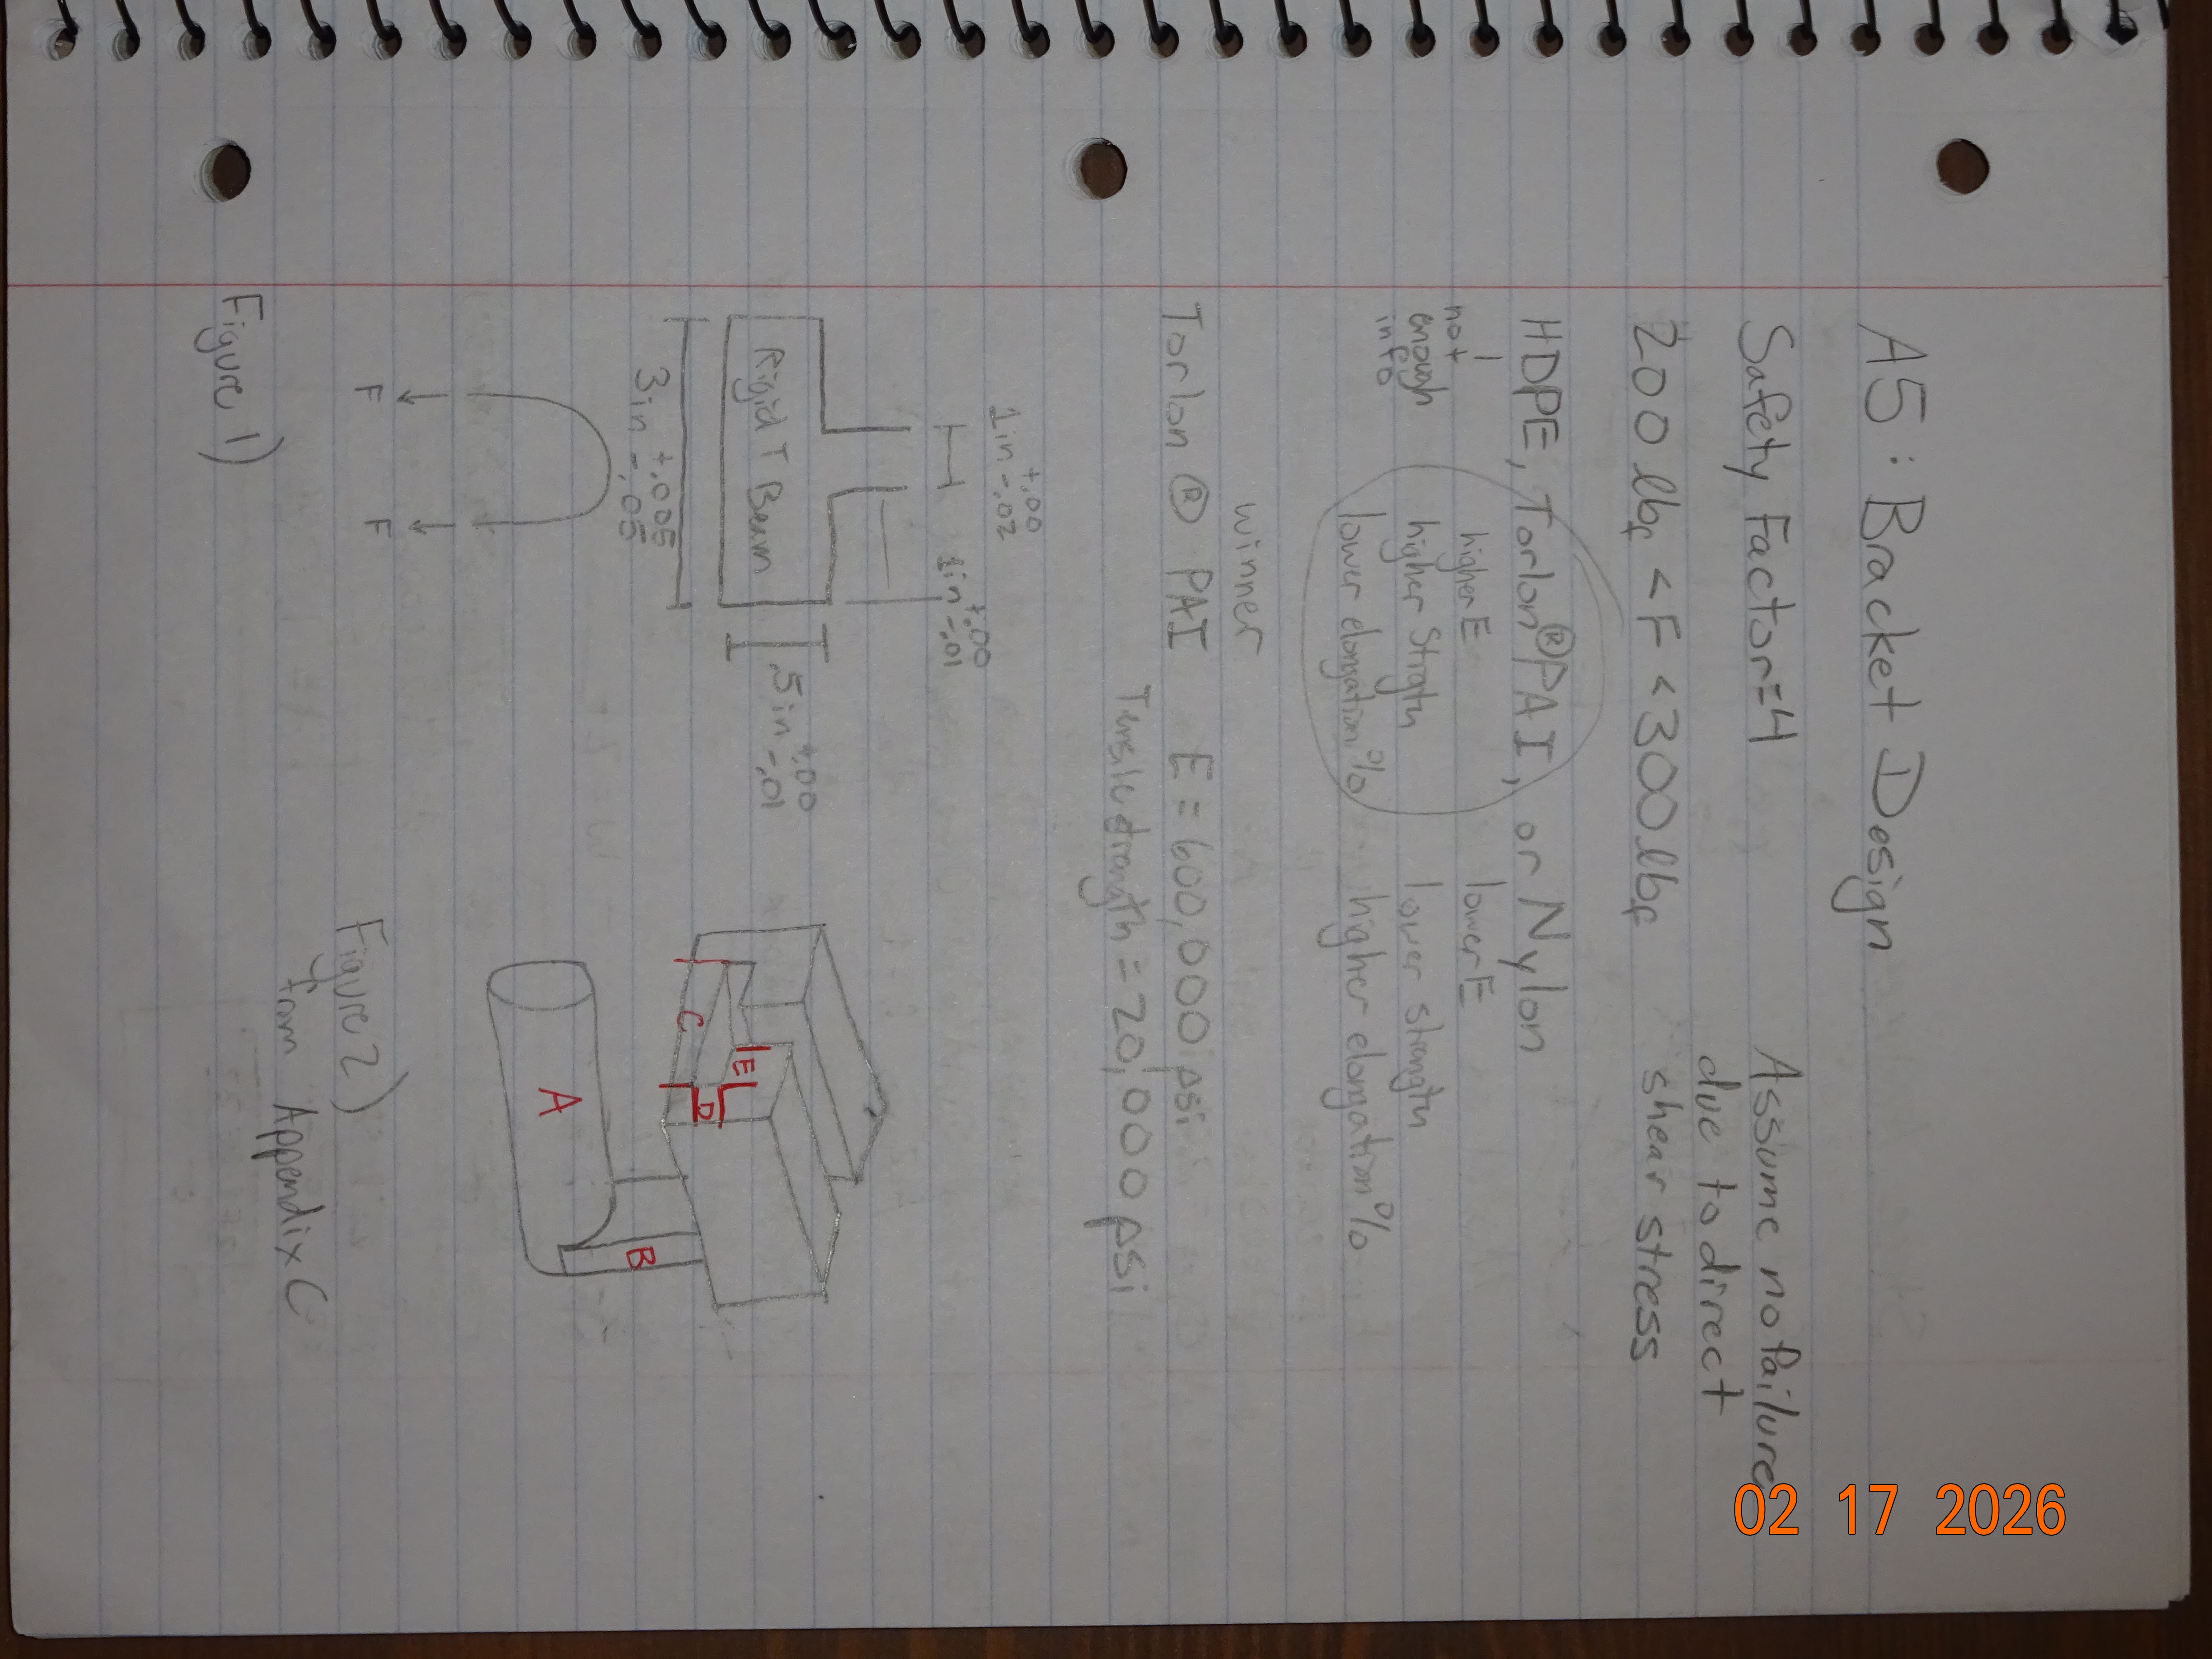 A5: Bracket Design
Safety Factor=4
Assume no failure
due to direct
shear stress
200 lbf < F < 300 lbf
HDPE, Torlon® PAI, or Nylon
not
enough
info
higher E
higher Strength
lower elongation%
lower E
lower strength
higher elongation%
winner
Torlon ® PAI E = 600,000 psi
Tensile strength = 20,000 psi
1in +.00 -.02
1in +.00 -.01
Rigid T Beam
.5in +.00 -.01
3in +.005 -.05
F F
Figure 1)
C
E
D
A
B
Figure 2)
from Appendix C
02 17 2026